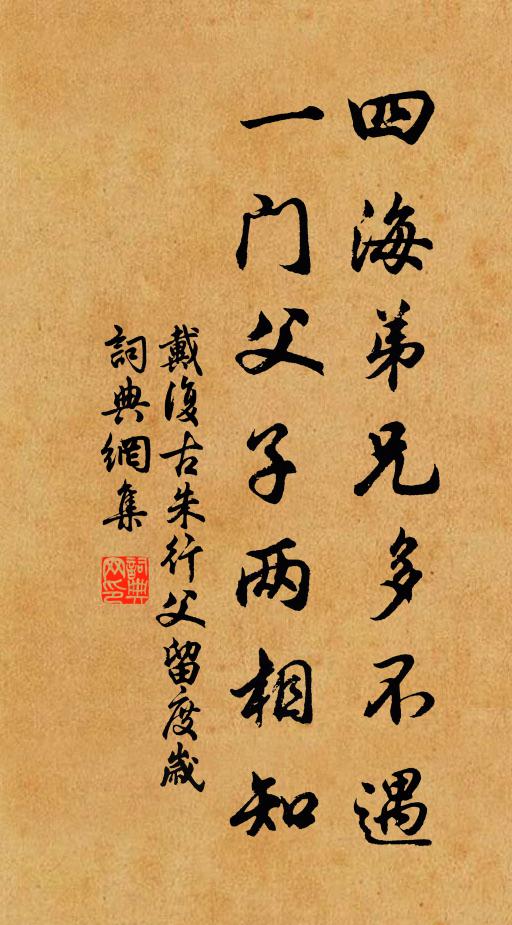 四海弟兄多不遇
一门父子两相知
戴復古朱行父留度歲
詞典網集
詞典网印